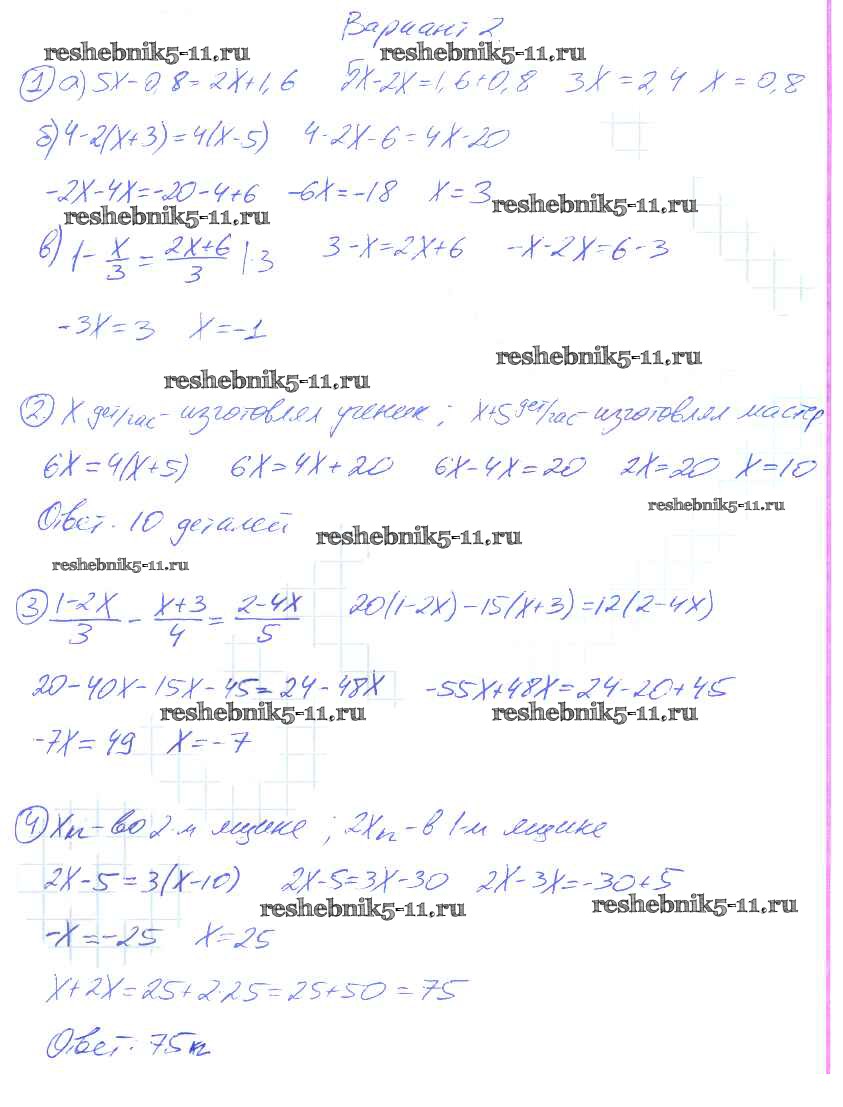 Вариант 2
reshebnik5-11.ru reshebnik5-11.ru
1 а) 5х-0,8=2х+1,6 5х-2х=1,6+0,8 3х=2,4 х=0,8
б) 4-2(х+3)=4(х-5) 4-2х-6=4х-20
-2х-4х=-20-4+6 -6х=-18 х=3
reshebnik5-11.ru reshebnik5-11.ru
в) 1-х/3=(2х+6)/3 |·3 3-х=2х+6 -х-2х=6-3
-3х=3 х=-1
reshebnik5-11.ru reshebnik5-11.ru
2. х дет/час-изготовлял ученик; х+5 дет/час-изготовлял мастер
6х=4(х+5) 6х=4х+20 6х-4х=20 2х=20 х=10
reshebnik5-11.ru
Ответ. 10 деталей
reshebnik5-11.ru
reshebnik5-11.ru
3 (1-2х)/3-(х+3)/4=(2-4х)/5 20(1-2х)-15(х+3)=12(2-4х)
20-40х-15х-45=24-48х -55х+48х=24-20+45
reshebnik5-11.ru reshebnik5-11.ru
-7х=49 х=-7
4 х л-во 2-м ящике; 2х л-в 1-м ящике
2х-5=3(х-10) 2х-5=3х-30 2х-3х=-30+5
reshebnik5-11.ru reshebnik5-11.ru
-х=-25 х=25
х+2х=25+2·25=25+50=75
Ответ. 75